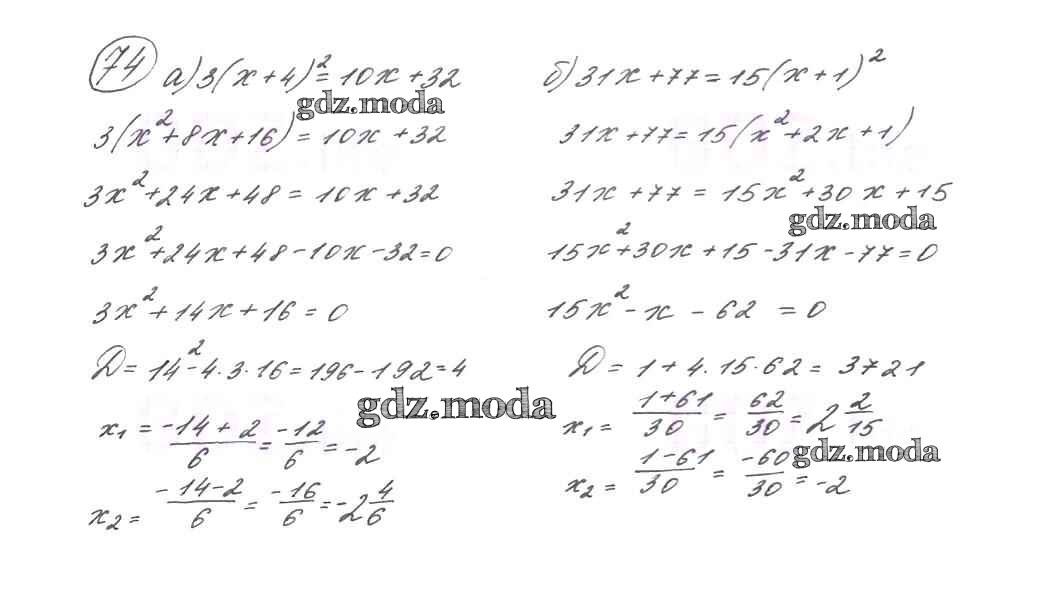 74 а) 3(x+4)² = 10x+32
gdz.moda
3(x²+8x+16) = 10x+32
3x²+24x+48 = 10x+32
3x²+24x+48-10x-32=0
3x²+14x+16=0
D=14²-4·3·16=196-192=4
gdz.moda
x₁ = (-14+2)/6 = -12/6 = -2
x₂ = (-14-2)/6 = -16/6 = -2 4/6
б) 31x+77=15(x+1)²
31x+77=15(x²+2x+1)
31x+77 = 15x²+30x+15
gdz.moda
15x²+30x+15-31x-77=0
15x²-x-62 = 0
D = 1+4·15·62 = 3721
x₁ = (1+61)/30 = 62/30 = 2 2/15
gdz.moda
x₂ = (1-61)/30 = -60/30 = -2